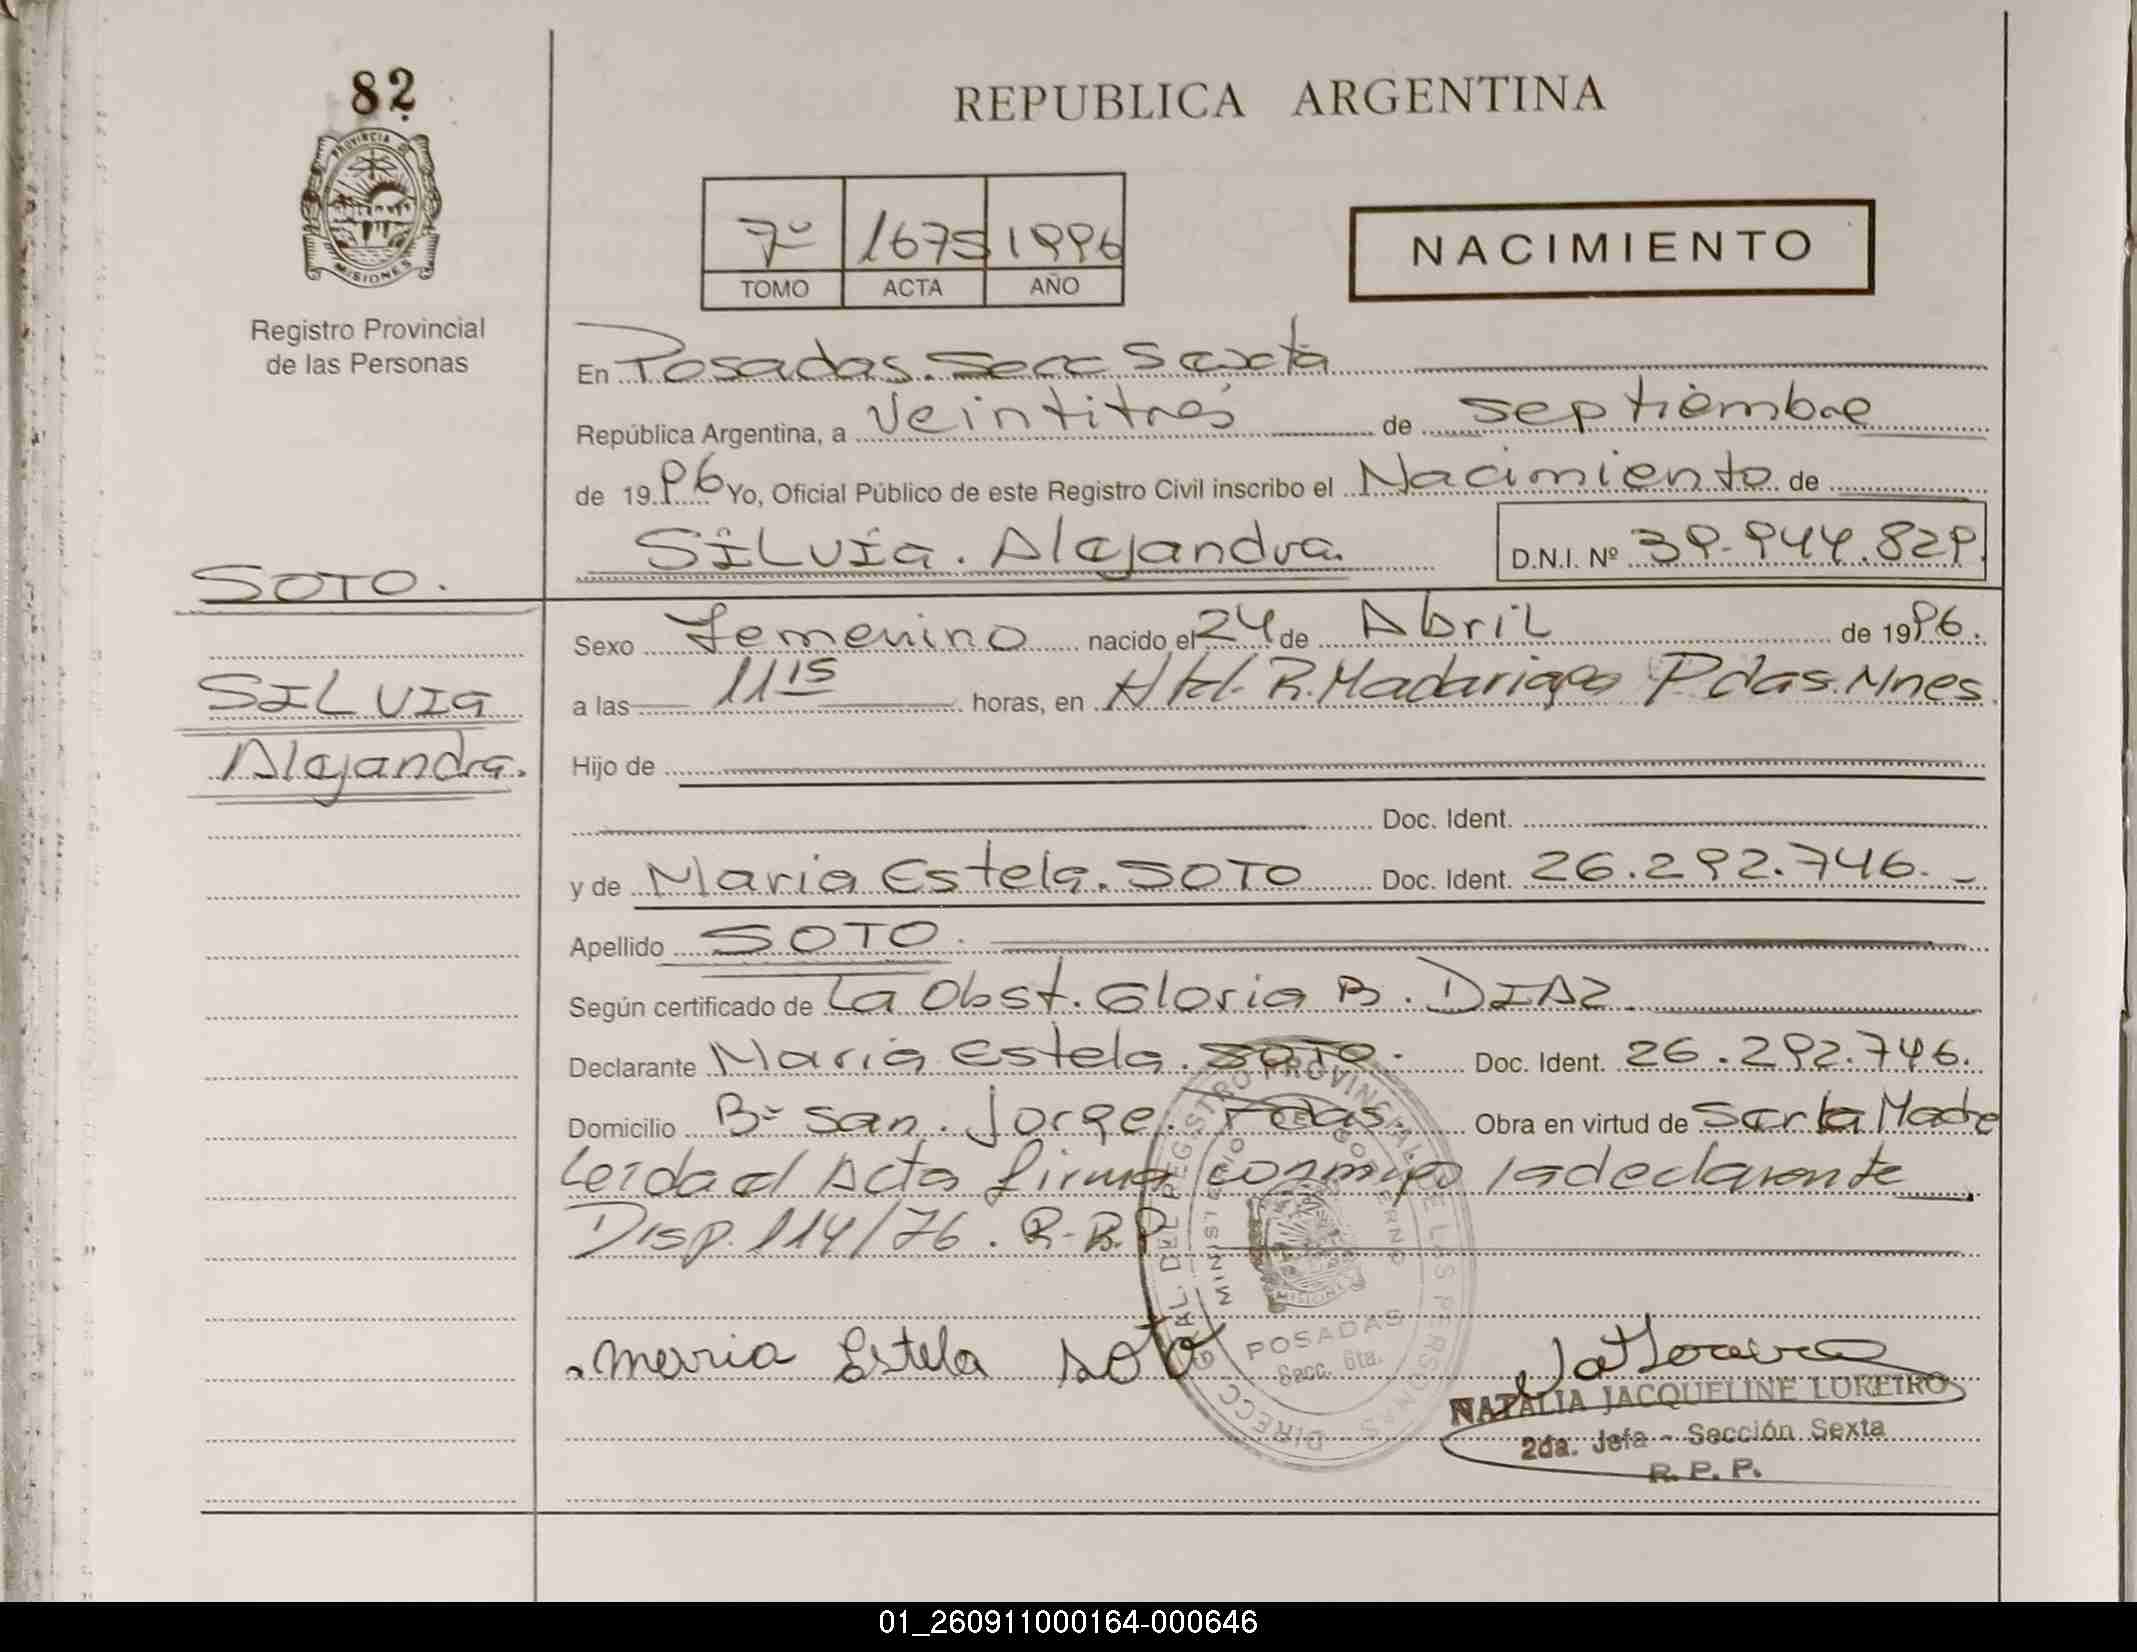 82
PROVINCIA DE
MISIONES
Registro Provincial
de las Personas
SOTO.
SILVIA
Alejandra.
REPUBLICA ARGENTINA
7º 1675 1996
TOMO ACTA AÑO
NACIMIENTO
En Posadas. Secc Sexta
República Argentina, a veintitres de septiembre
de 1996 Yo, Oficial Público de este Registro Civil inscribo el Nacimiento de
SILVIA. Alejandra. D.N.I. Nº 39.944.829.
Sexo Femenino nacido el 24 de Abril de 1996.
a las 11 15 horas, en Htl. R. Madariaga Pdas. Mnes.
Hijo de
Doc. Ident.
y de Maria Estela. SOTO Doc. Ident. 26.292.746.-
Apellido SOTO.
Según certificado de La Obst. Gloria B. DIAZ
Declarante Maria Estela. SOTO. Doc. Ident. 26.292.746.
Domicilio Bº San. Jorge. Pdas. Obra en virtud de Ser la Madre
Leida el Acta firma conmigo la declarante
Disp. 114/76. R-B.P
DIRECC. GRAL. DEL REGISTRO PROVINCIAL DE LAS PERSONAS
MINISTERIO DE GOBIERNO
MISIONES
POSADAS
Secc. 6ta.
Maria Estela Soto
NATALIA JACQUELINE LOREIRO
2da. Jefa - Sección Sexta
R. P. P.
01_260911000164-000646